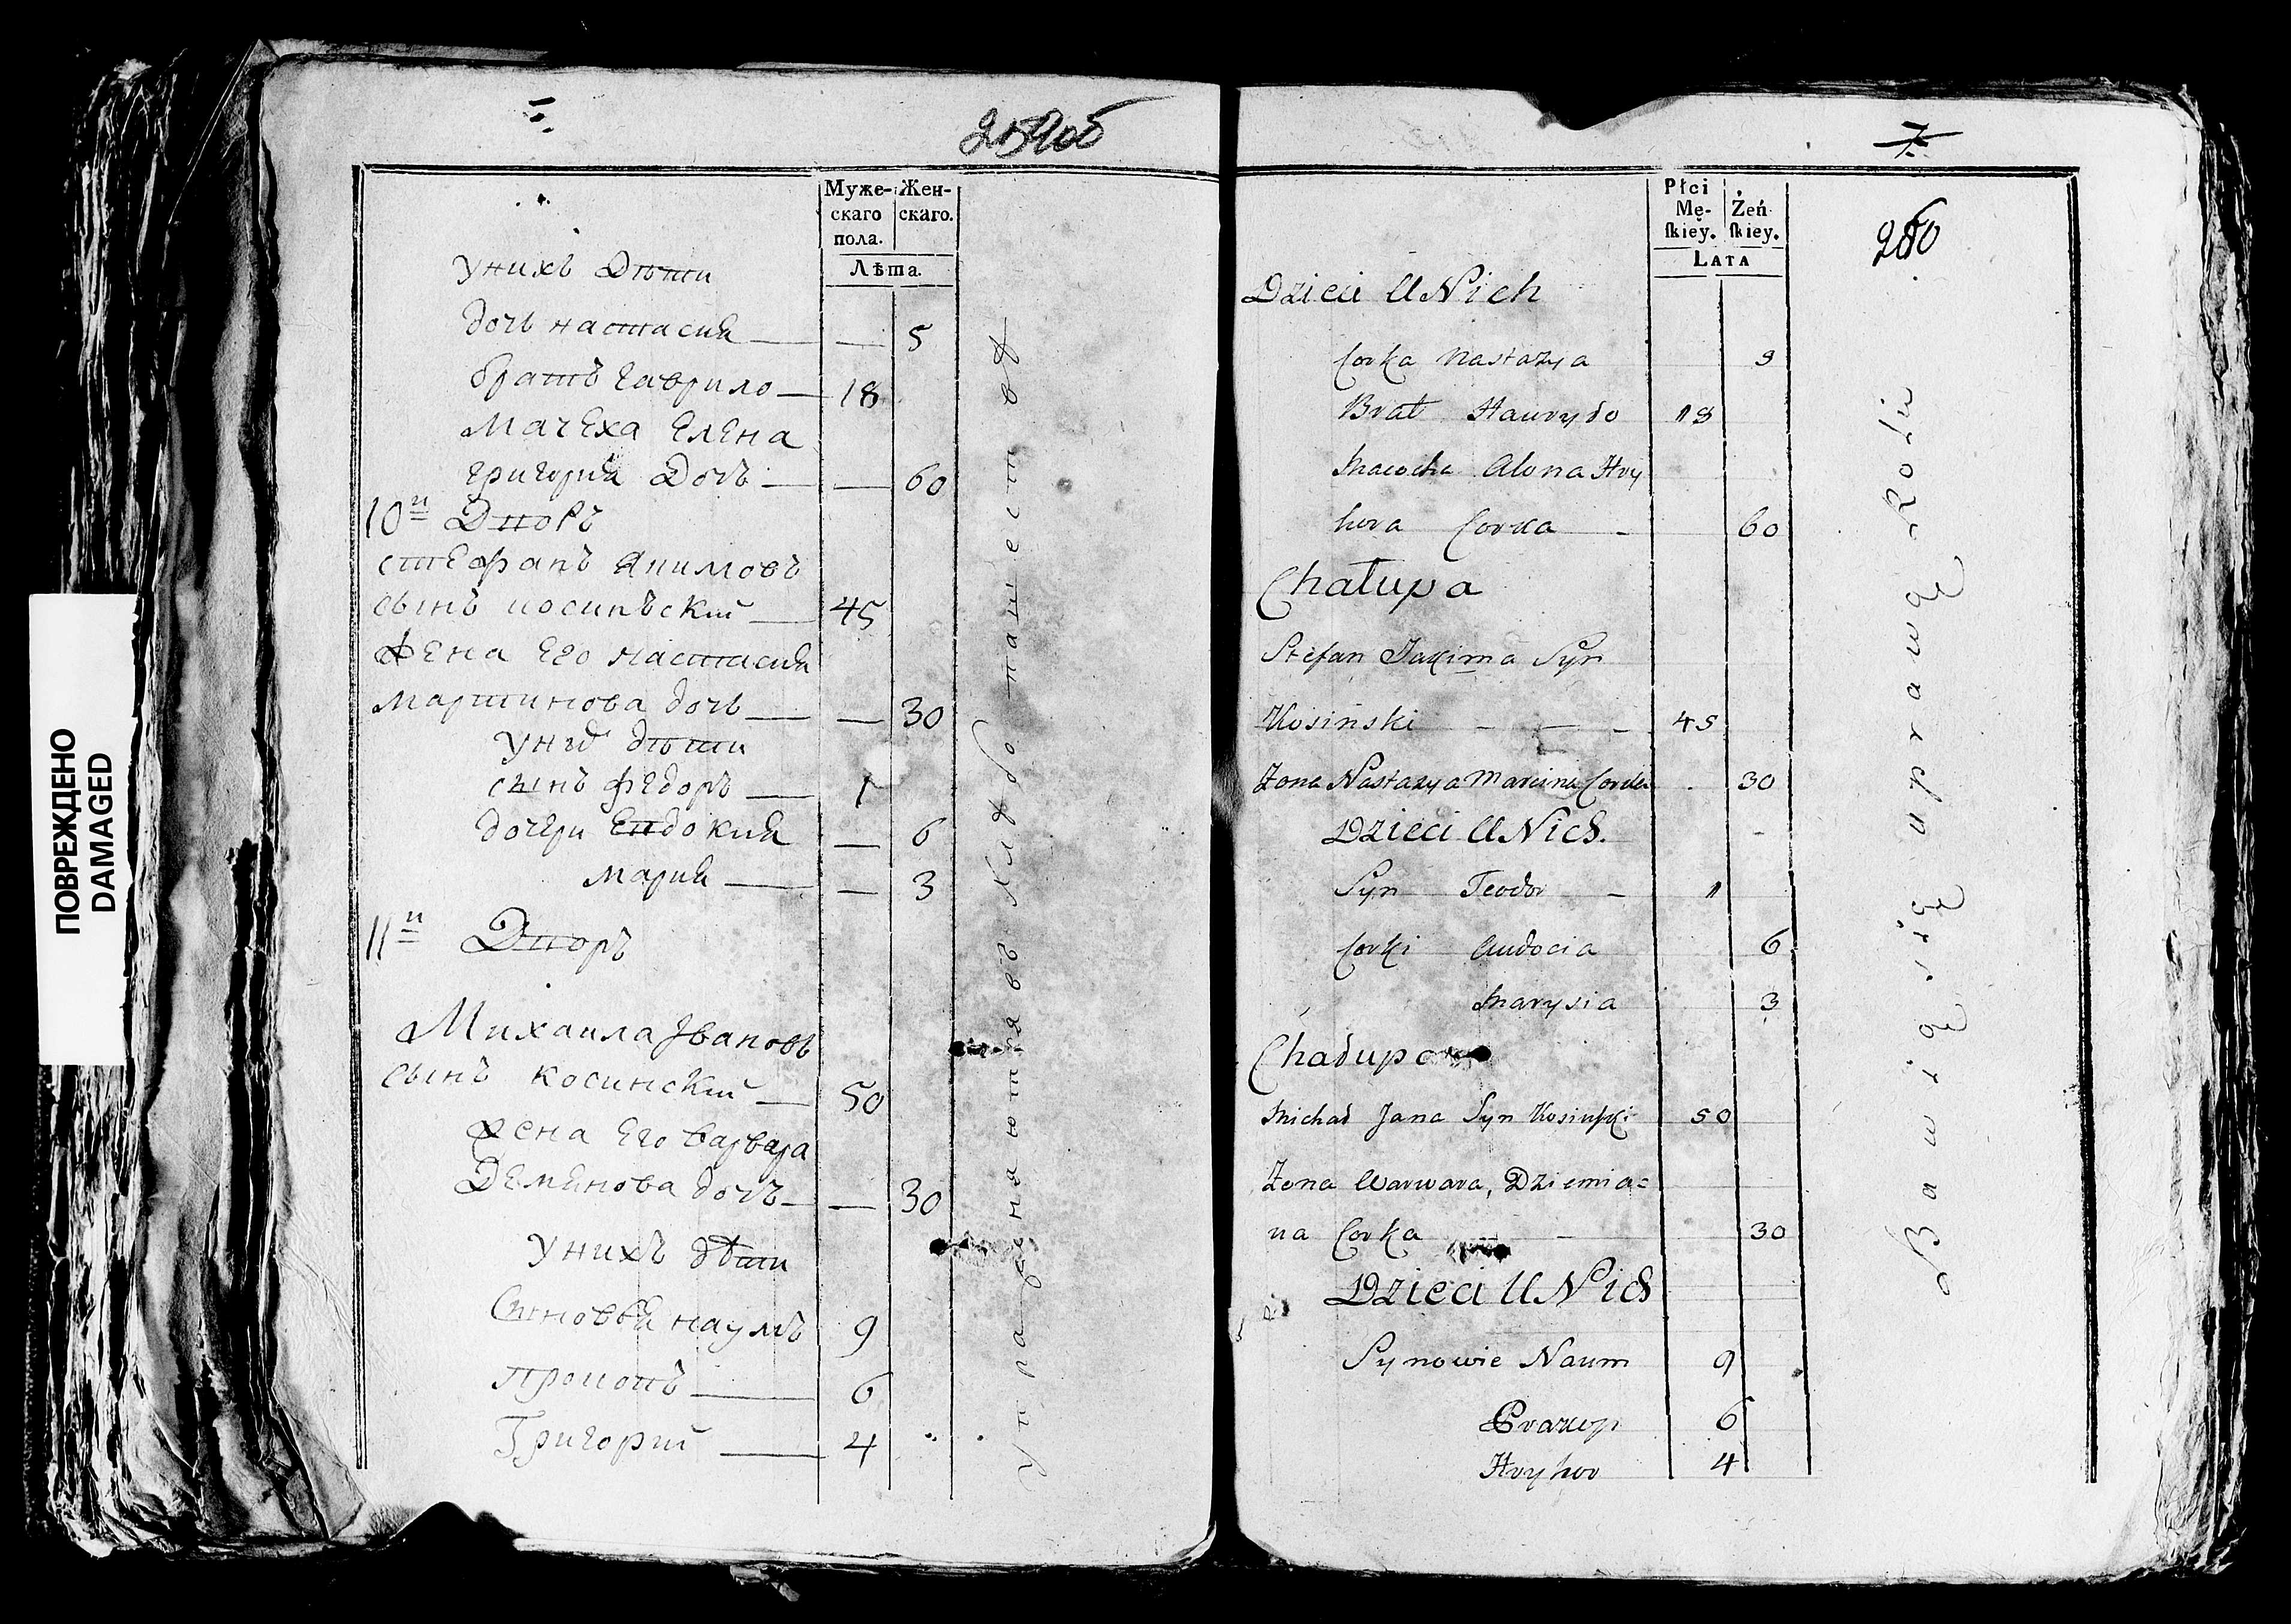 ПОВРЕЖДЕНО
DAMAGED
259об
Муже-
скаго
пола.
Жен-
скаго.
Лѣта.
унихъ Дѣти
дочь настасия 5
братъ гаврило 18
Мачеха Елена
григория Дочь 60
10й Дворъ
стефанъ Якимовъ
сынъ косинъский 45
жена Его настасия
мартинова дочь 30
Уних дѣти
сынъ федоръ 1
дочери Евдокия 6
мария 3
11й Дворъ
Михаила Ивановъ
сынъ косинский 50
жена Его варвара
Демянова дочь 30
унихъ дѣти
Сыновья наумъ 9
прокопъ 6
Григорий 4
упражнаются въ хлѣбопашествѣ
7.
260
Płci
Mę-
ſkiey.
Żeń
ſkiey.
LATA
Dzieci U Nich
Corka Nastazya 5
Brat Hawryło 18
Macocha Alona Hry
hora Corka 60
Chałupa
Stefan Jakima Syn
Kosinski 45
Zona Nastazya Marcina Corka 30
Dzieci U Nich.
Syn Teodor 1
Corki Audocia 6
Marysia 3
Chałupa
Michał Jana Syn Kosinſki 50
Zona Warwara, Dziemia=
na Corka 30
Dzieci U Nich
Synowie Naum 9
Prakop 6
Hryhor 4
Bawią się uprawą Roli